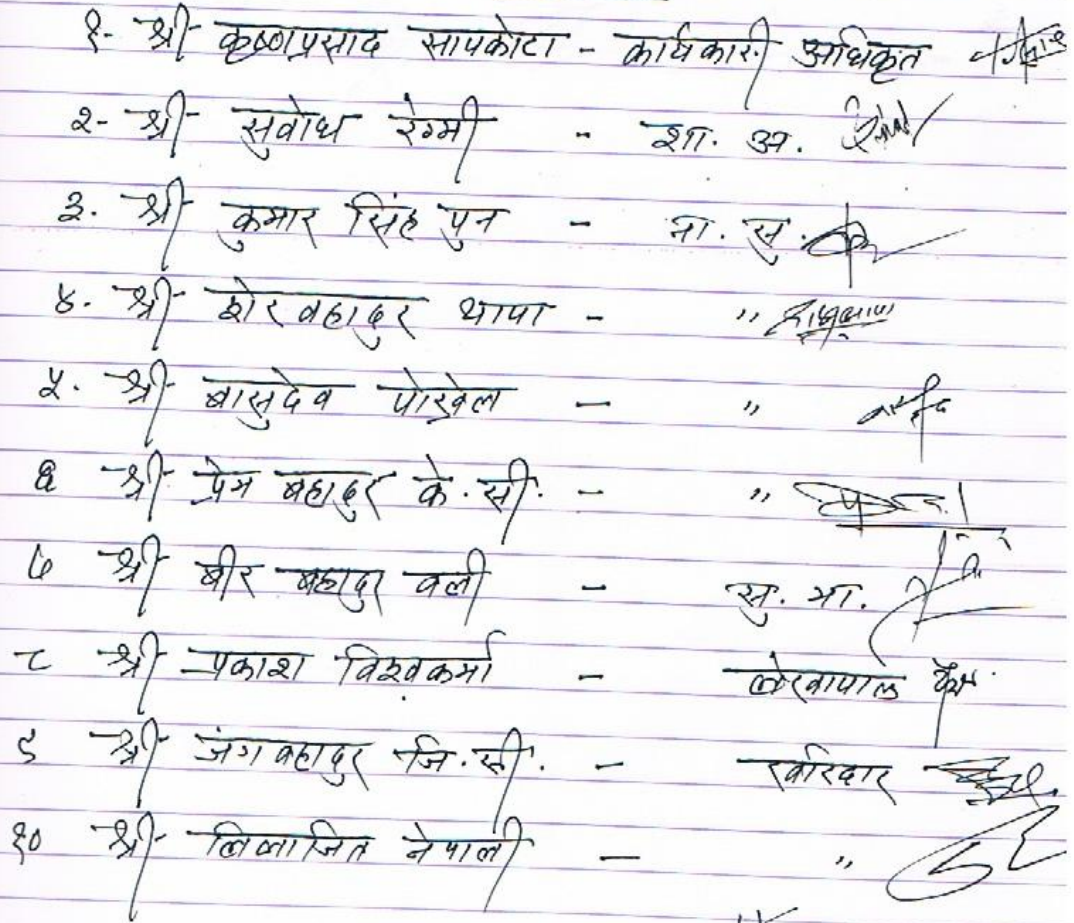 १- श्री कृष्णप्रसाद सापकोटा - कार्यकारी अधिकृत
२- श्री सुवोध रेग्मी - शा. अ.
३. श्री कुमार सिंह पुन - ना. सु.
४. श्री शेर वहादुर थापा - "
५. श्री बासुदेव पोख्रेल - "
६ श्री प्रेम बहादुर के. सी. - "
७ श्री बीर बहादुर वली - सु. भा.
८ श्री प्रकाश विश्वकर्मा - लेखापाल
९ श्री जंग वहादुर जि. सी. - खरिदार
१० श्री लिलाजित नेपाली - "